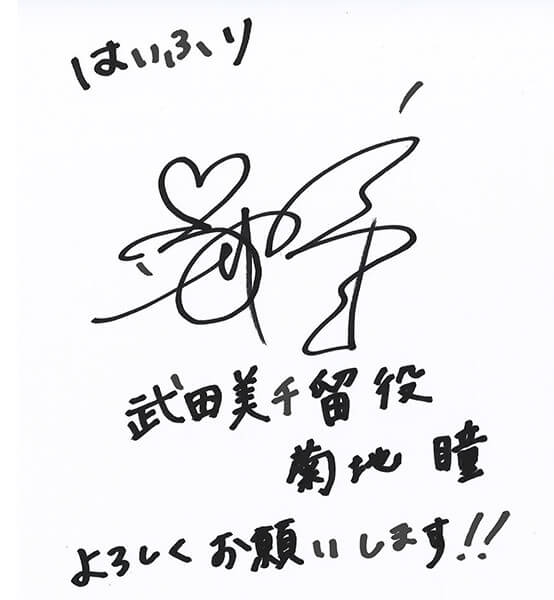 はいふり
武田美千留役
菊地 瞳
よろしくお願いします!!